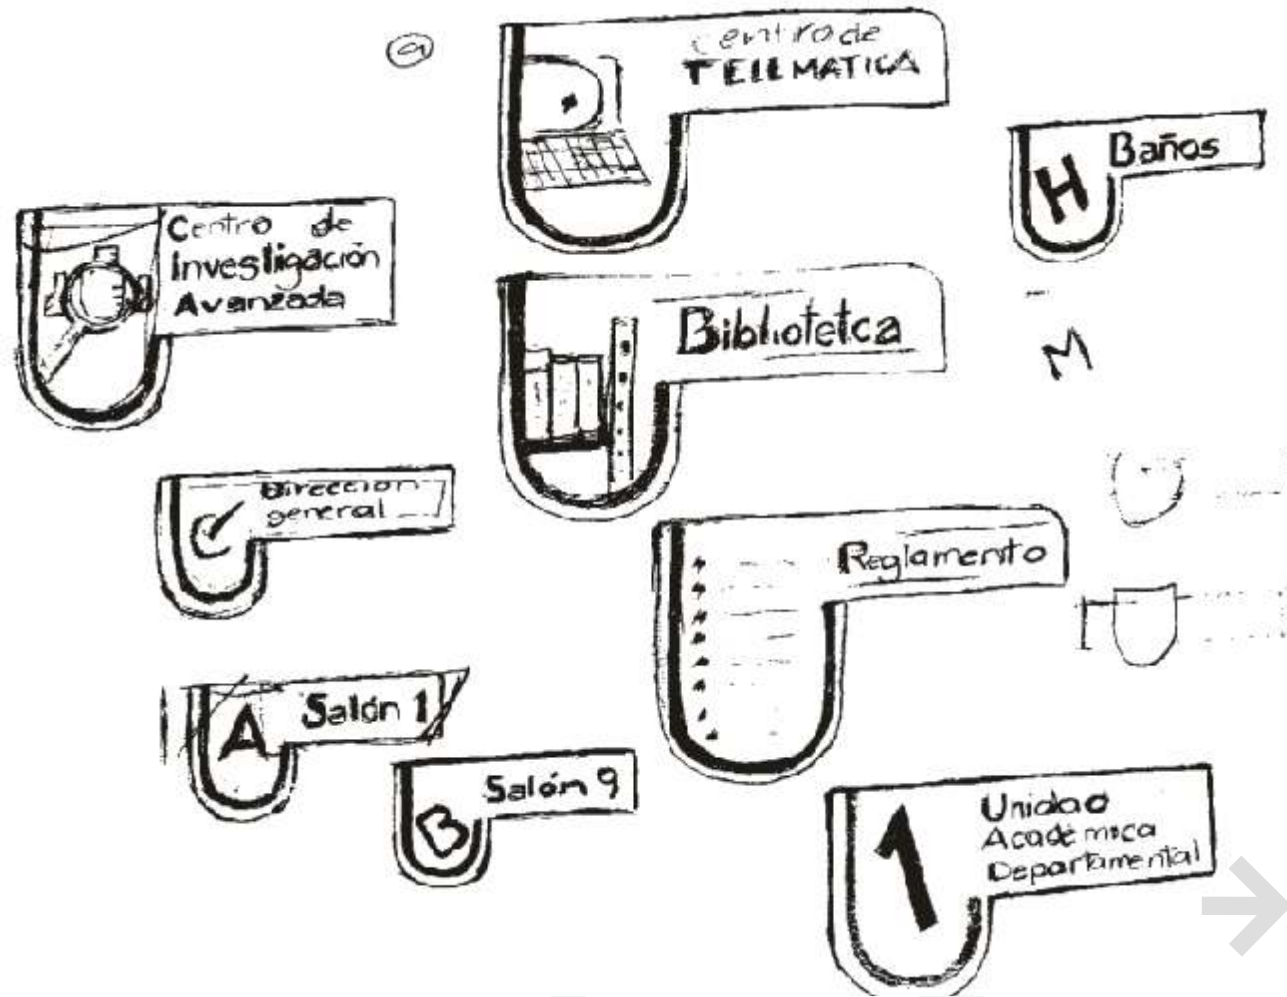 a
Centro de
TELEMATICA
H
Baños
Centro de
Investigación
Avanzada
Bibliotetca
M
Dirección
general
Reglamento
A
Salón 1
B
Salón 9
1
Unidad
Académica
Departamental